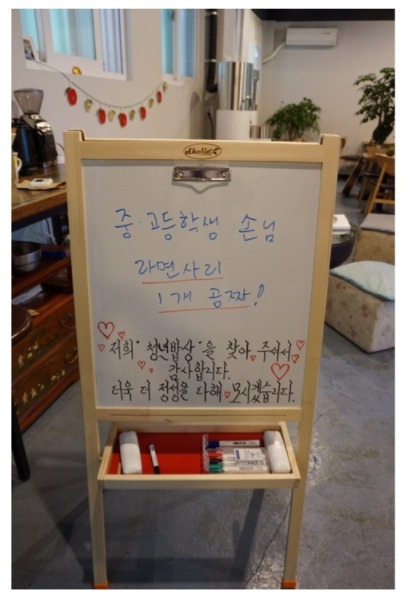 중·고등학생 손님
라면사리
1개 공짜!
저희 "청년밥상"을 찾아 주셔서
감사합니다.
더욱 더 정성을 다해 모시겠습니다.